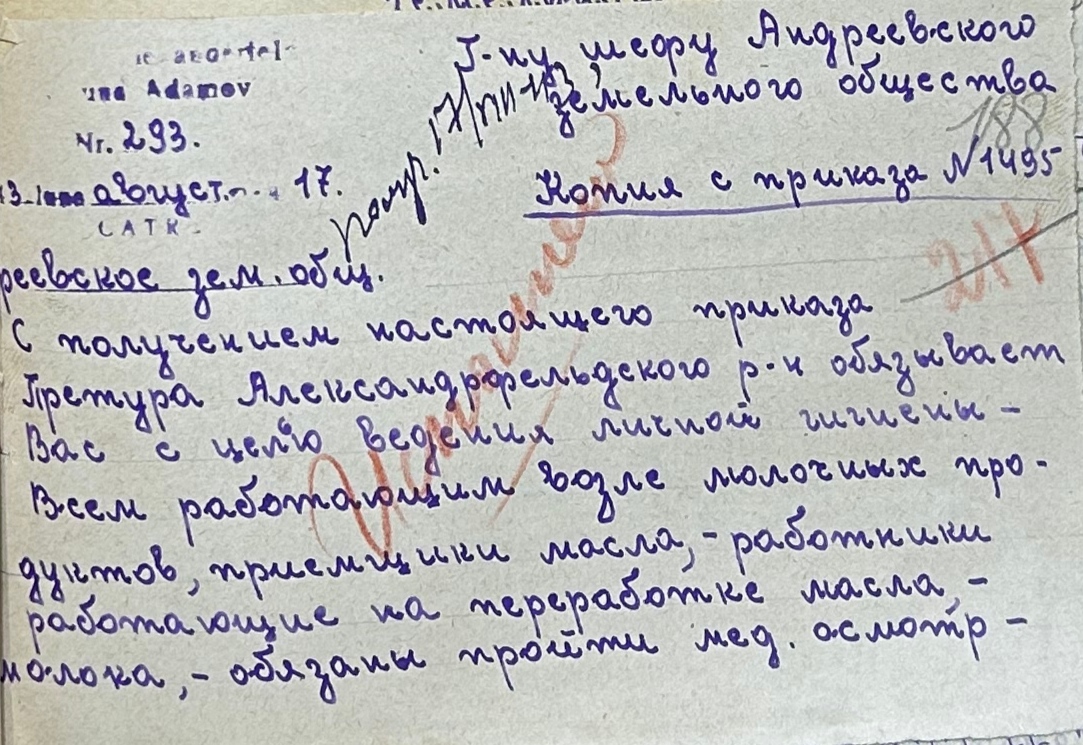 und Adamov
Nr. 293.
август 17.
Г-ну шефу Андреевского
земельного общества
188
Копия с приказа N 1495
217
реевское зем. общ.
С получением настоящего приказа
Претура Александрфельдского р-н обязывает
Вас с целю ведения личной гигиены -
Всем работающим возле молочных про-
дуктов, приемщики масла, - работники
работающие на переработке масла, -
молока, - обязаны пройти мед. осмотр -